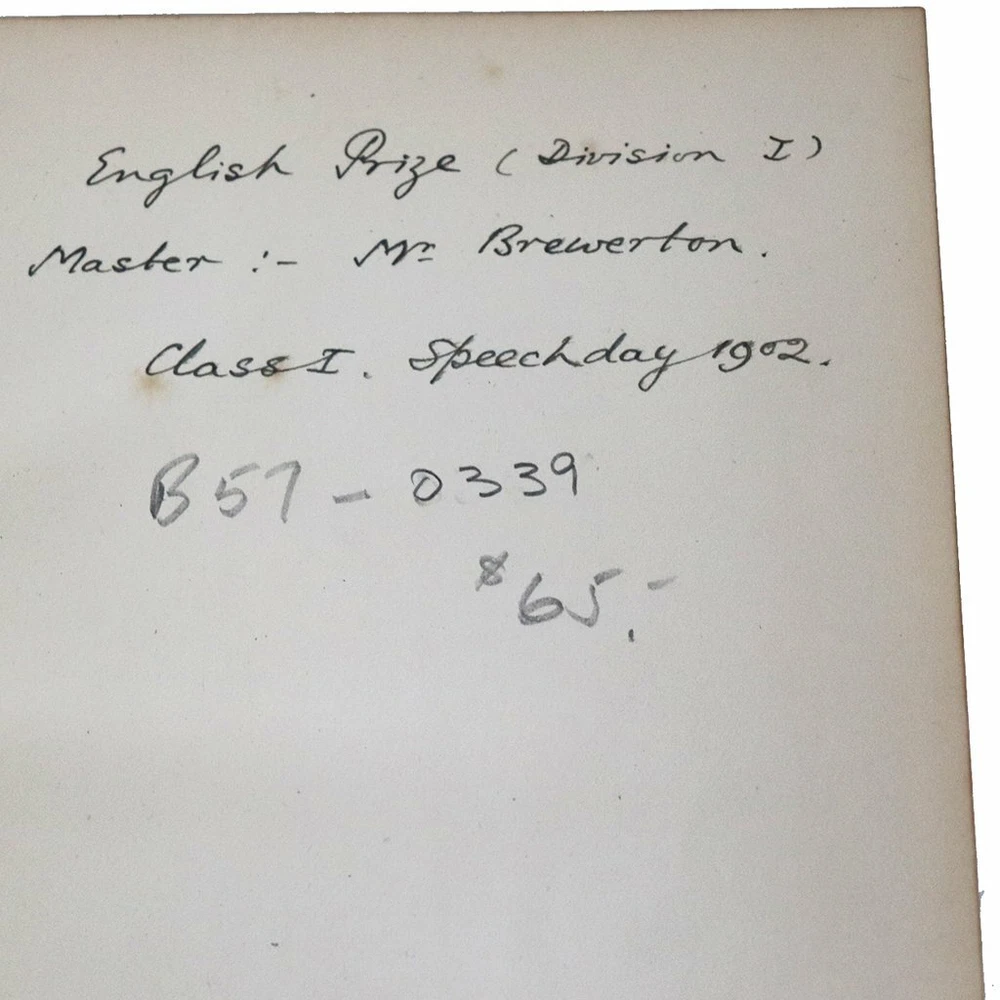 English Prize (Division I)
Master :- Mr Brewerton.
Class I. Speechday 1902.
B57 - 0339
$65.-